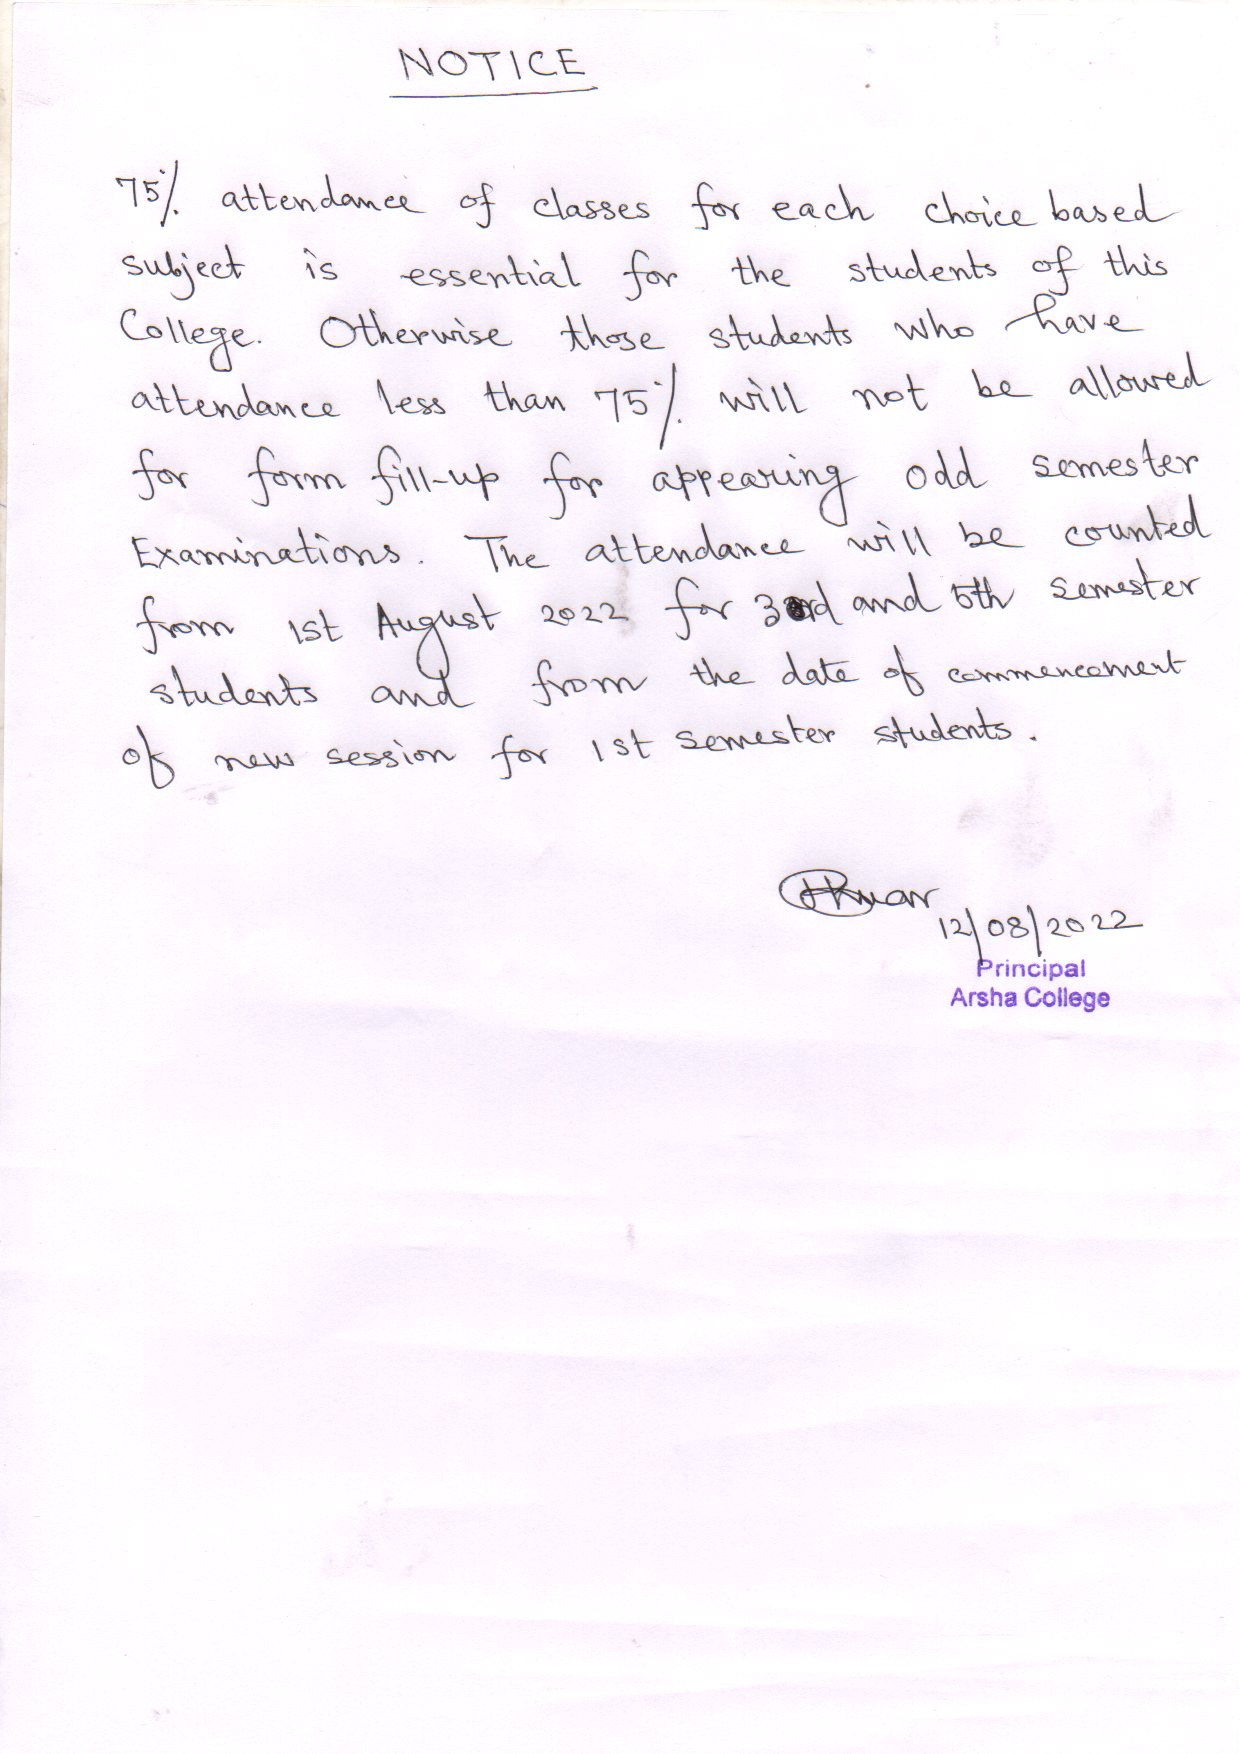 NOTICE
75% attendance of classes for each choice based
subject is essential for the students of this
College. Otherwise those students who have
attendance less than 75% will not be allowed
for form fill-up for appearing odd semester
Examinations. The attendance will be counted
from 1st August 2022 for 3rd and 5th semester
students and from the date of commencement
of new session for 1st semester students.
12/08/2022
Principal
Arsha College